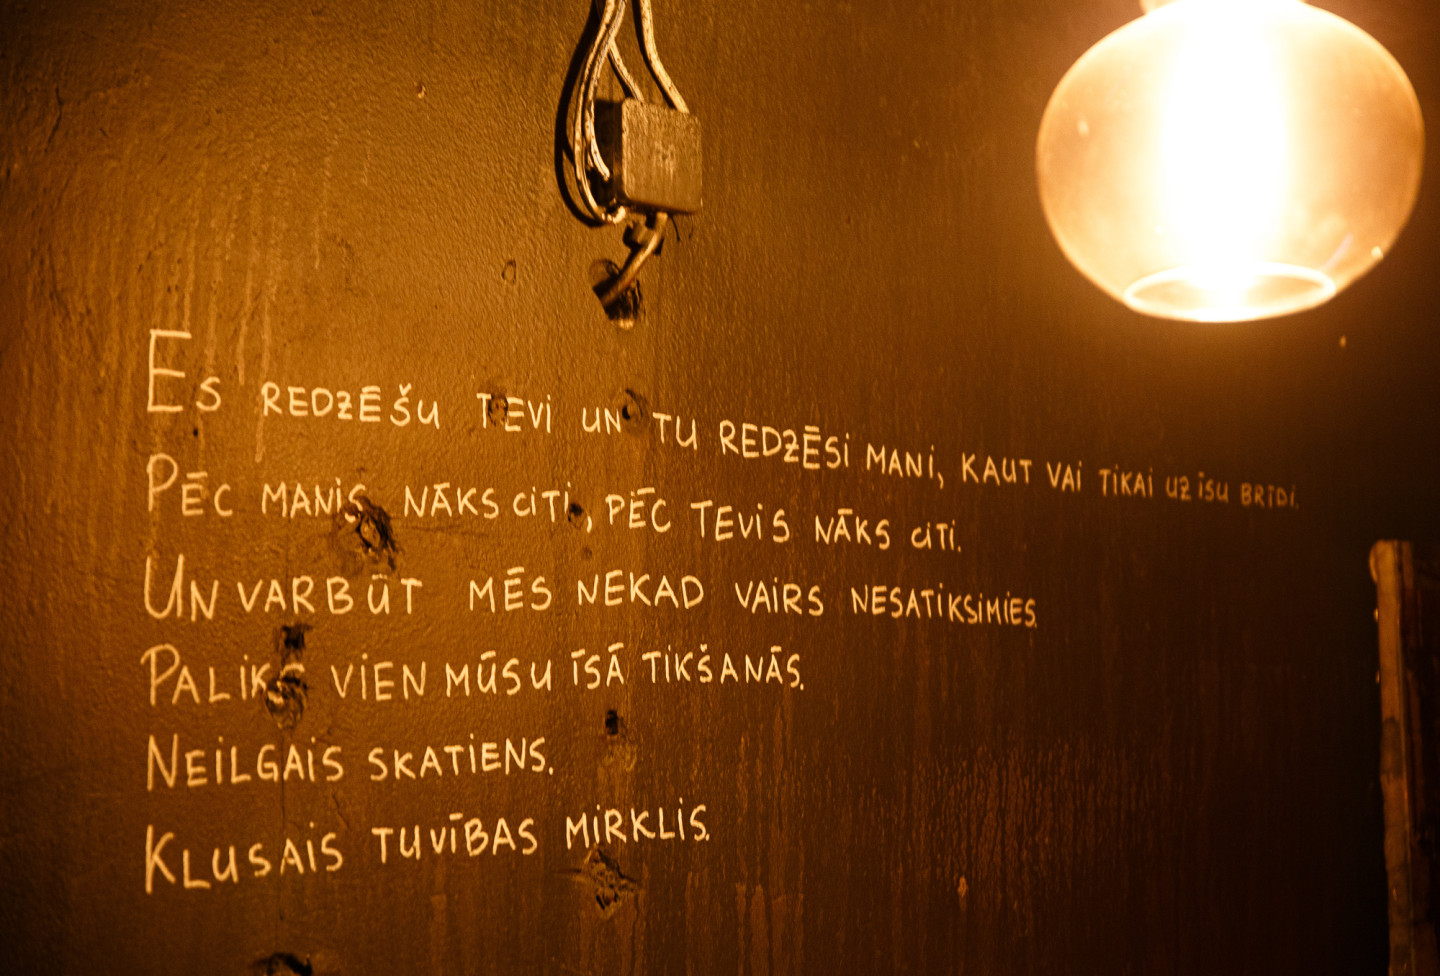 Es redzēšu tevi un tu redzēsi mani, kaut vai tikai uz īsu brīdi.
Pēc manis nāks citi, pēc tevis nāks citi.
Un varbūt mēs nekad vairs nesatiksimies.
Paliks vien mūsu īsā tikšanās.
Neilgais skatiens.
Klusais tuvības mirklis.